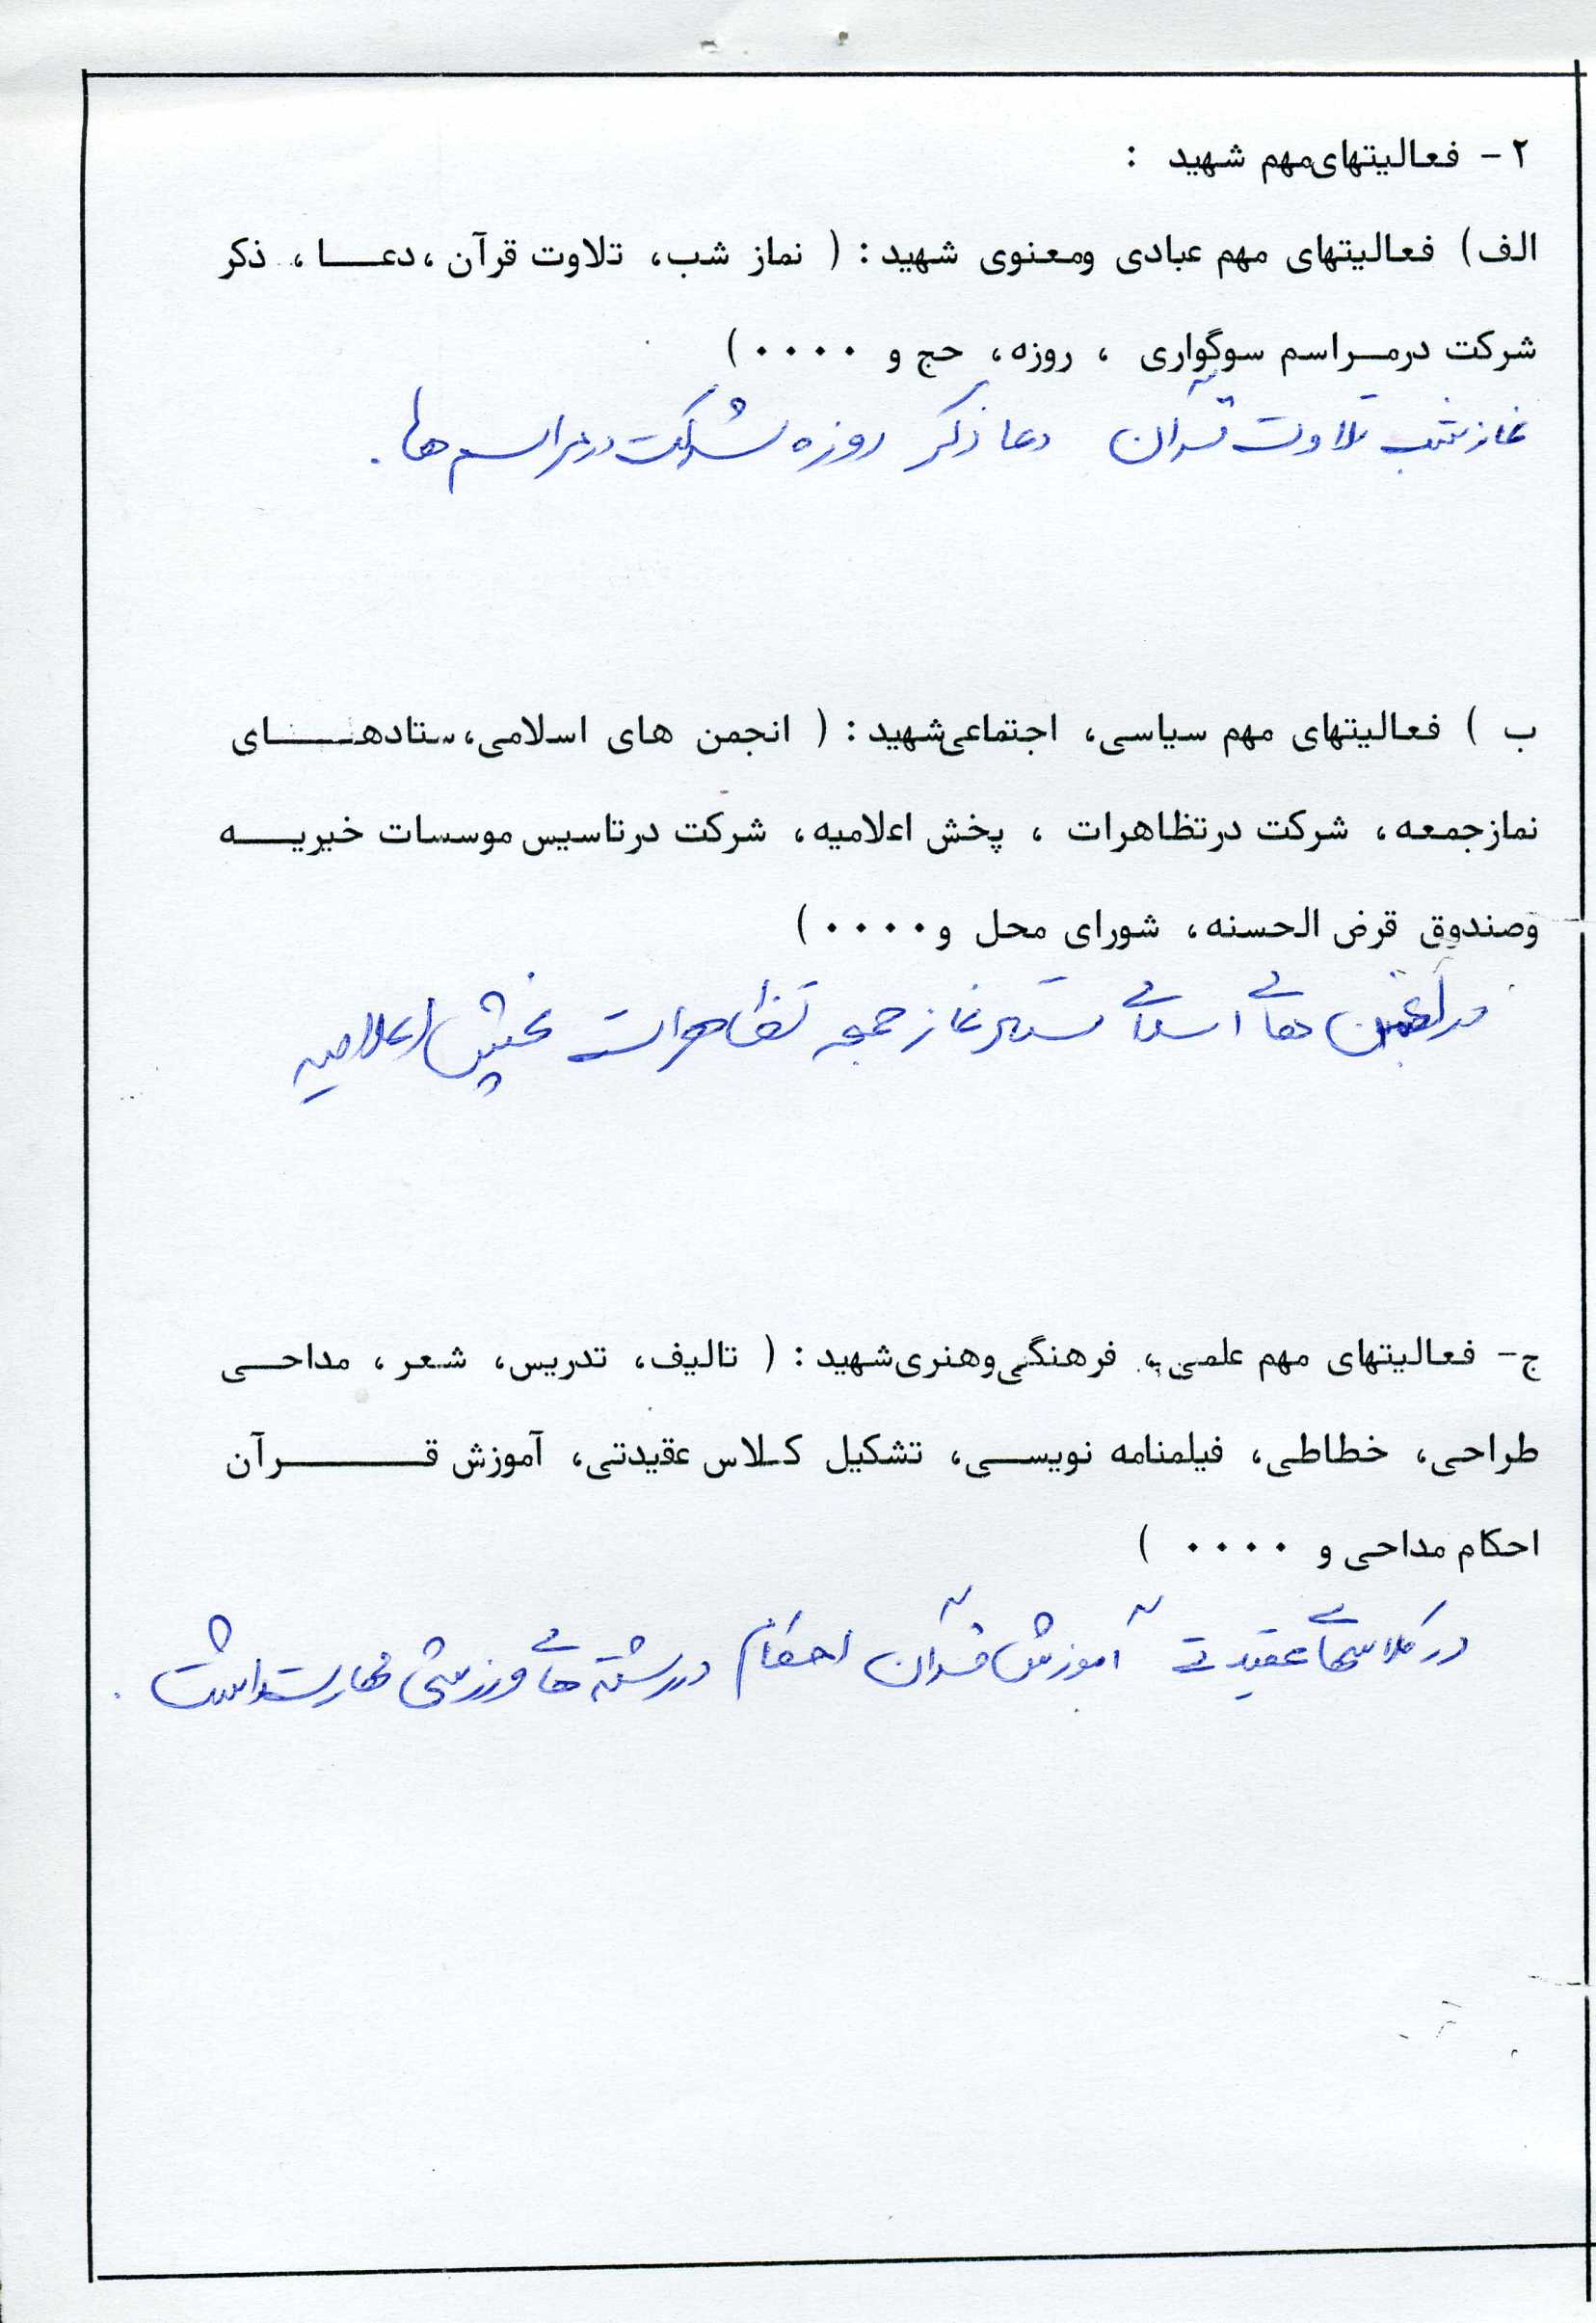 ۲- فعالیتهای مهم شهید :
الف) فعالیتهای مهم عبادی ومعنوی شهید : ( نماز شب، تلاوت قرآن ،دعا ، ذکر
شرکت درمراسم سوگواری ، روزه، حج و ۰۰۰۰)
نماز شب تلاوت قرآن دعا ذکر روزه شرکت در مراسم ها.
ب ) فعالیتهای مهم سیاسی، اجتماعی شهید : ( انجمن های اسلامی، ستادهای
نمازجمعه، شرکت درتظاهرات ، پخش اعلامیه، شرکت درتاسیس موسسات خیریه
وصندوق قرض الحسنه، شورای محل و۰۰۰۰)
در انجمن های اسلامی ستاد نماز جمعه تظاهرات پخش اعلامیه
ج- فعالیتهای مهم علمی، فرهنگی وهنری شهید : ( تالیف، تدریس، شعر ، مداحی
طراحی، خطاطی، فیلمنامه نویسی، تشکیل کلاس عقیدتی، آموزش قرآن
احکام مداحی و ۰۰۰۰ )
در کلاسهای عقیدتی آموزش قرآن احکام در رشته های ورزشی مهارت داشت .